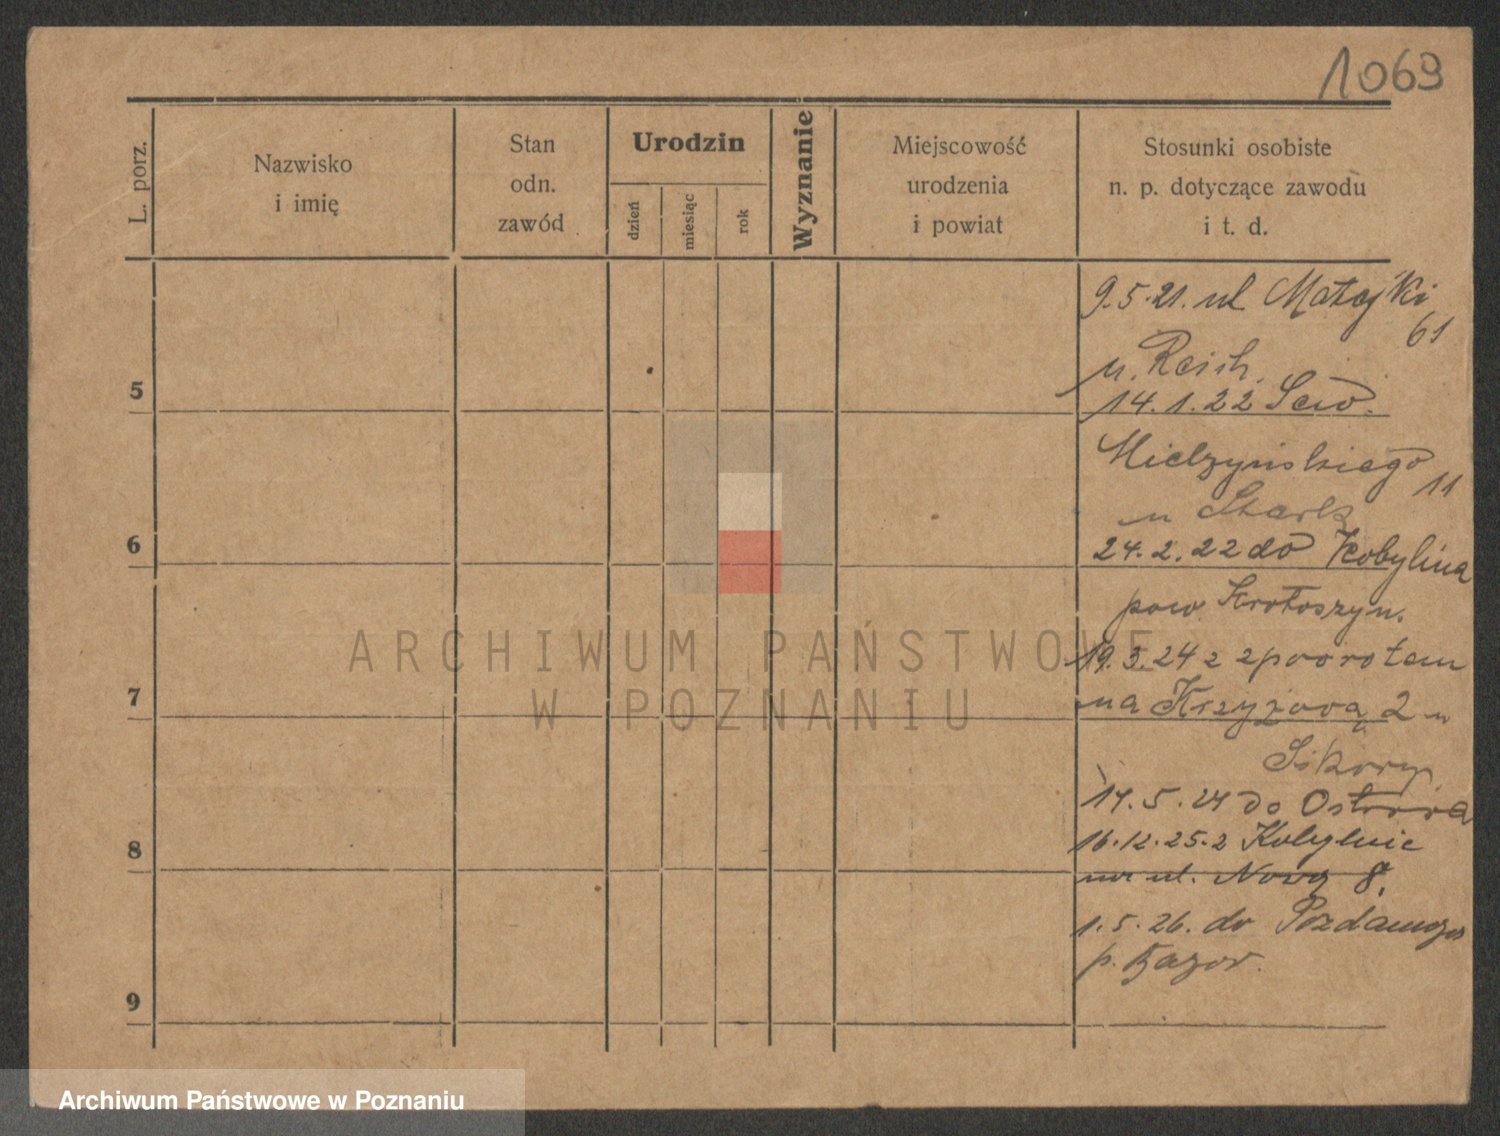 1069
L. porz.
Nazwisko
i imię
Stan
odn.
zawód
Urodzin
dzień
miesiąc
rok
Wyznanie
Miejscowość
urodzenia
i powiat
Stosunki osobiste
n. p. dotyczące zawodu
i t. d.
9.5.21. ul Matejki
61
u. Reich.
5
14.1.22 Sew.
Mielzyńskiego
11
u Stark
6
24.2.22 do Kobylina
pow. Krotoszyn.
19.3.24 z zpowrotem
7
na Krzyżową 2 u
Sikory
14.5.24 do Ostrowa
8
16.12.25. z
na ul. Nową 8.
1.5.26. do
p.
9
ARCHIWUM PAŃSTWOWE
W POZNANIU
Archiwum Państwowe w Poznaniu